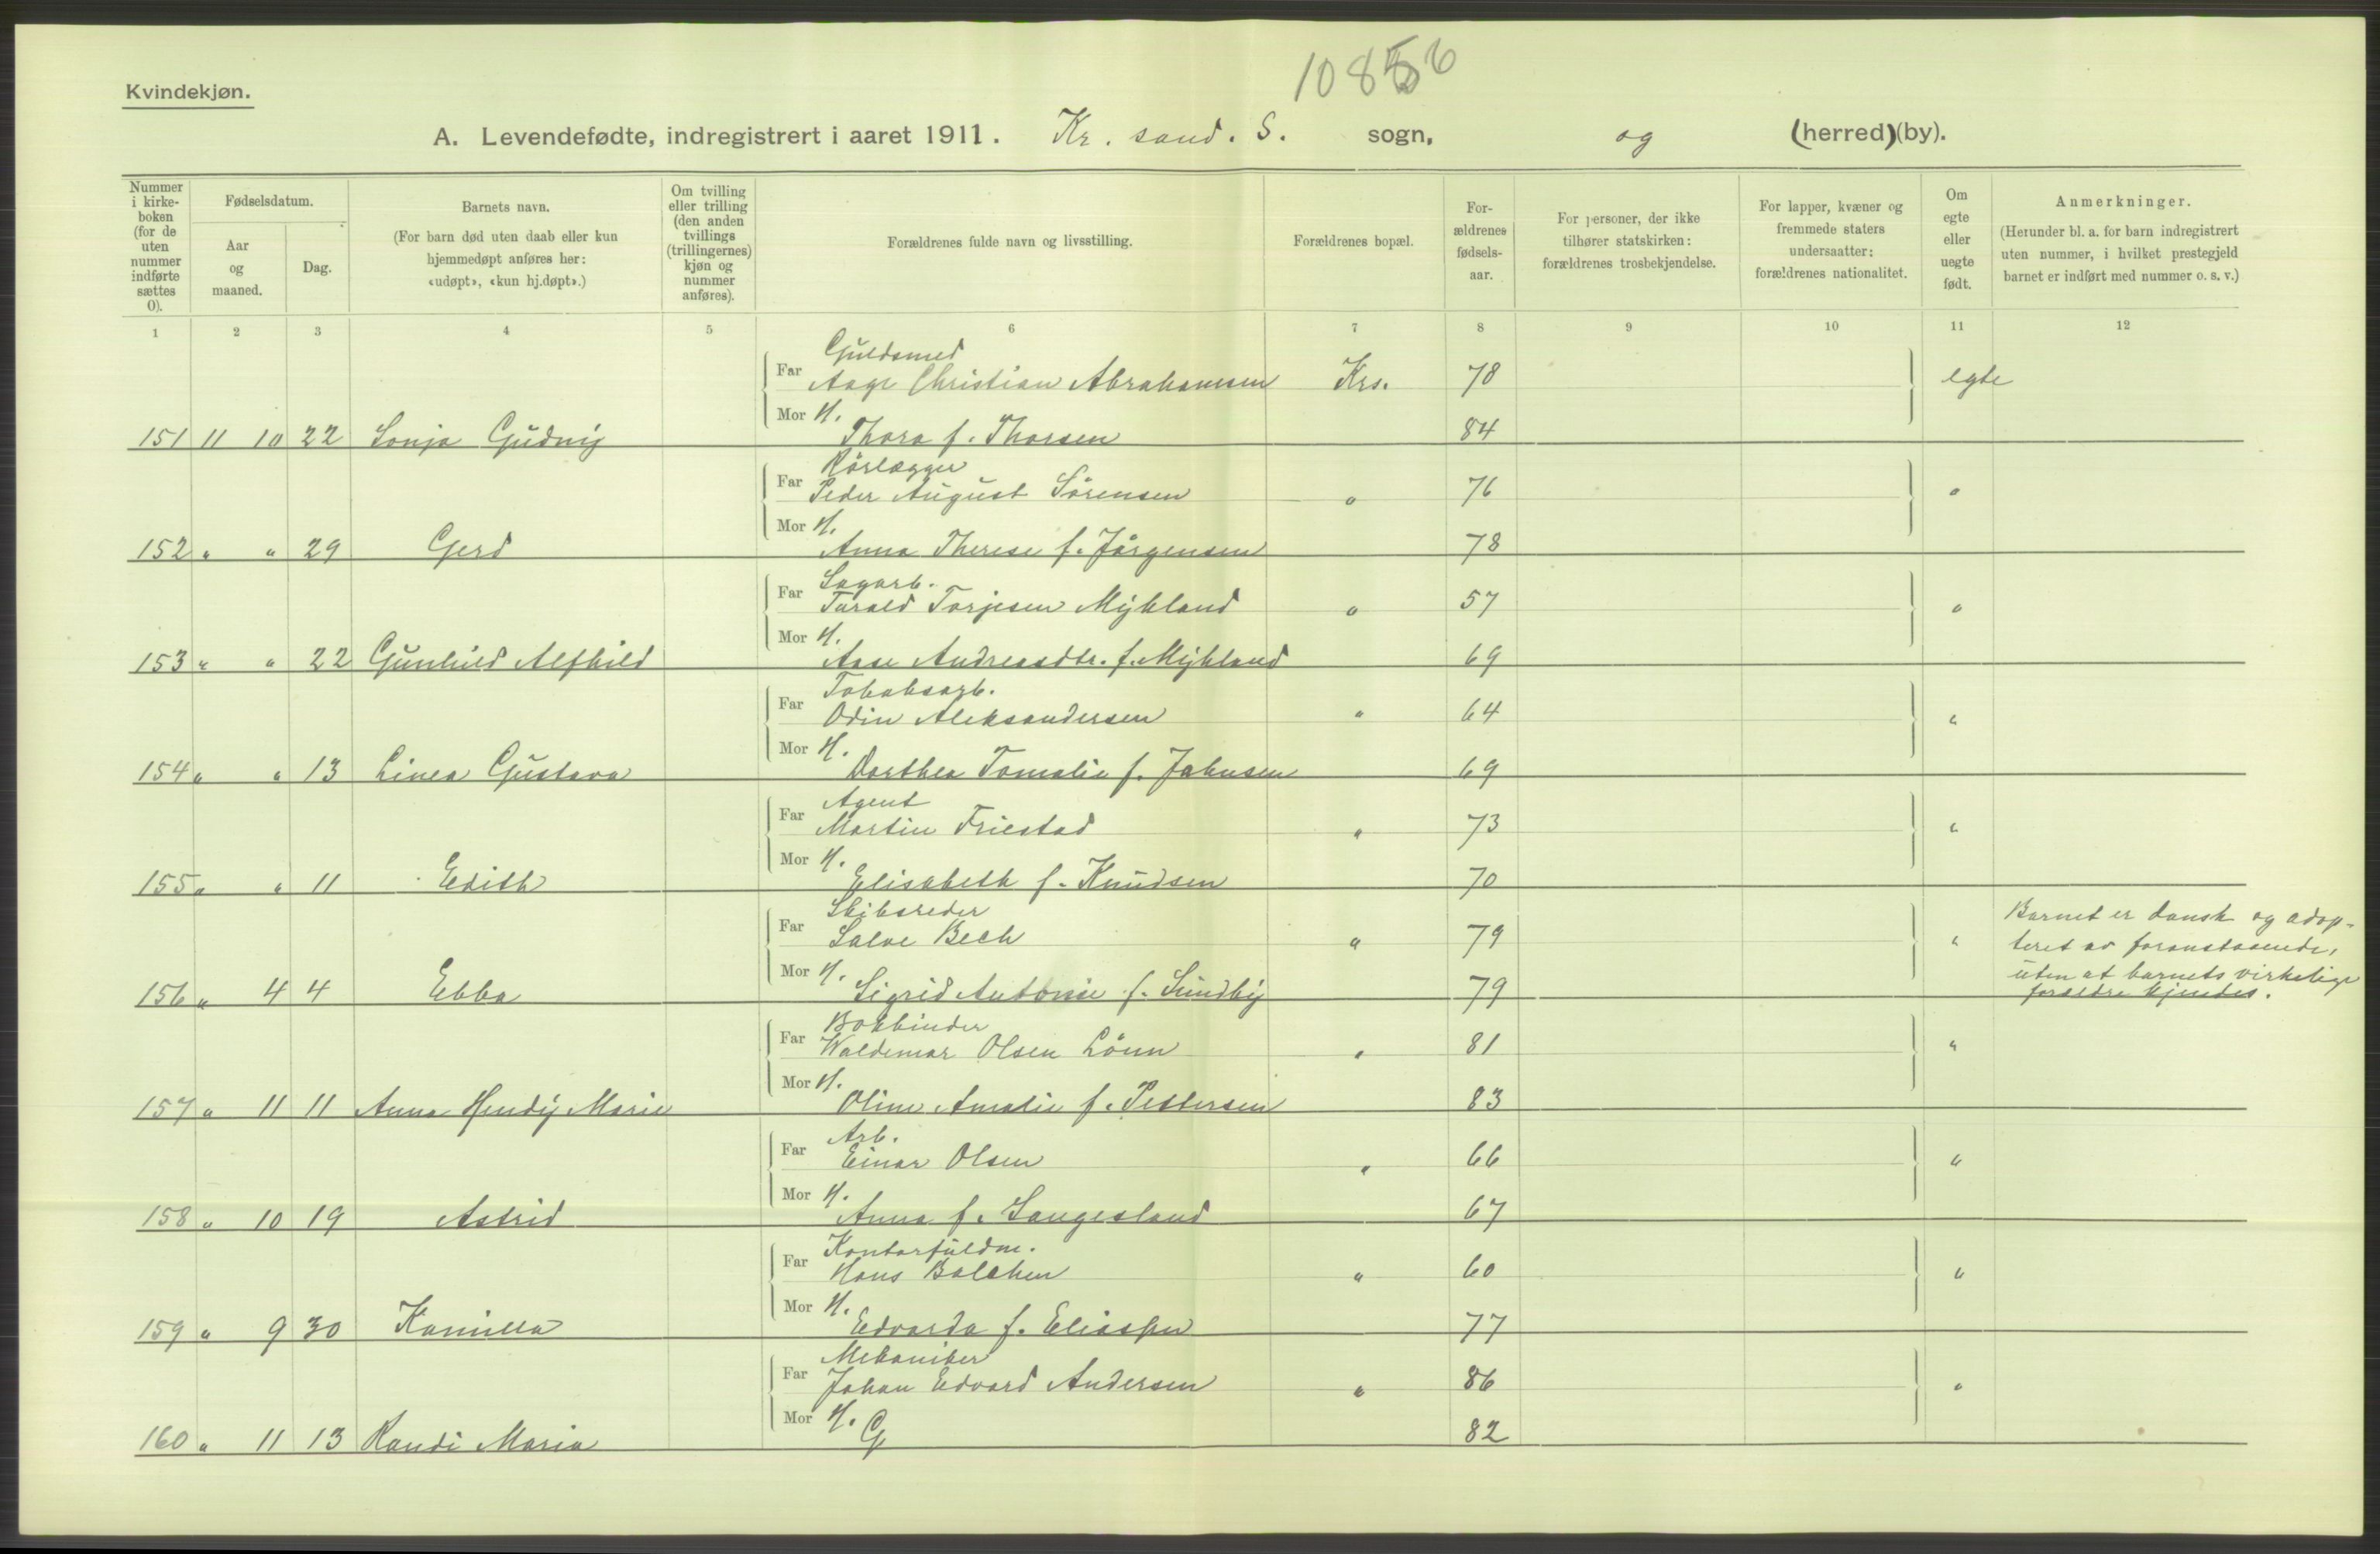 10856
Kvindekjøn.
A. Levendefødte, indregistrert i aaret 1911. Kr. sand. S. sogn, og (herred) (by).
Nummer i kirke-boken (for de uten nummer indførte sættes 0).
Fødselsdatum.
Aar og maaned.
Dag.
Barnets navn.
(For barn død uten daab eller kun hjemmedøpt anføres her: «udøpt», «kun hj.døpt».)
Om tvilling eller trilling (den anden tvillings (trillingernes) kjøn og nummer anføres).
Forældrenes fulde navn og livsstilling.
Forældrenes bopæl.
For-ældrenes fødsels-aar.
For personer, der ikke tilhører statskirken: forældrenes trosbekjendelse.
For lapper, kvæner og fremmede staters undersaatter: forældrenes nationalitet.
Om egte eller uegte født.
Anmerkninger.
(Herunder bl. a. for barn indregistrert uten nummer, i hvilket prestegjeld barnet er indført med nummer o. s. v.)
1 2 3 4 5 6 7 8 9 10 11 12
Guldsmed
Far Aage Christian Abrahamsen Krs. 78 egte
Mor H.
151 11 10 22 Sonja Gudny Thora f. Thorsen 84
Rørlægger
Far Peder August Sørensen " 76 "
Mor H.
152 " " 29 Gerd Anna Therese f. Jørgensen 78
Sagarb.
Far Tarald Torjesen Mykland " 57 "
Mor H.
153 " " 22 Gunhild Alfhild Aase Andreasdtr. f. Mykland 69
Tobaksarb.
Far Odin Aleksandersen " 64 "
Mor H.
154 " " 13 Linea Gustava Dorthea Tomalie f. Johnsen 69
Agent
Far Martin Friestad " 73 "
Mor H.
155 " " 11 Edith Elisabeth f. Knudsen 70
Skibsreder
Far Salve Bech " 79 " Barnet er dansk og adop-
teret av foranstaaende,
Mor H. uten at barnets virkelige
156 " 4 4 Ebba Sigrid Antonie f. Sundby 79 forældre kjendes.
Bokbinder
Far Waldemar Olsen Lönn " 81 "
Mor H.
157 " 11 11 Anna Hendy Marie Oline Amalie f. Pettersen 83
Arb.
Far Einar Olsen " 66 "
Mor H.
158 " 10 19 Astrid Anna f. Saugesland 67
Kontorfuldm.
Far Hans Balchen " 60 "
Mor H.
159 " 9 30 Kamilla Edvarda f. Eliassen 77
Mekaniker
Far Johan Edvard Andersen " 86 "
Mor H. G
160 " 11 13 Randi Maria 82